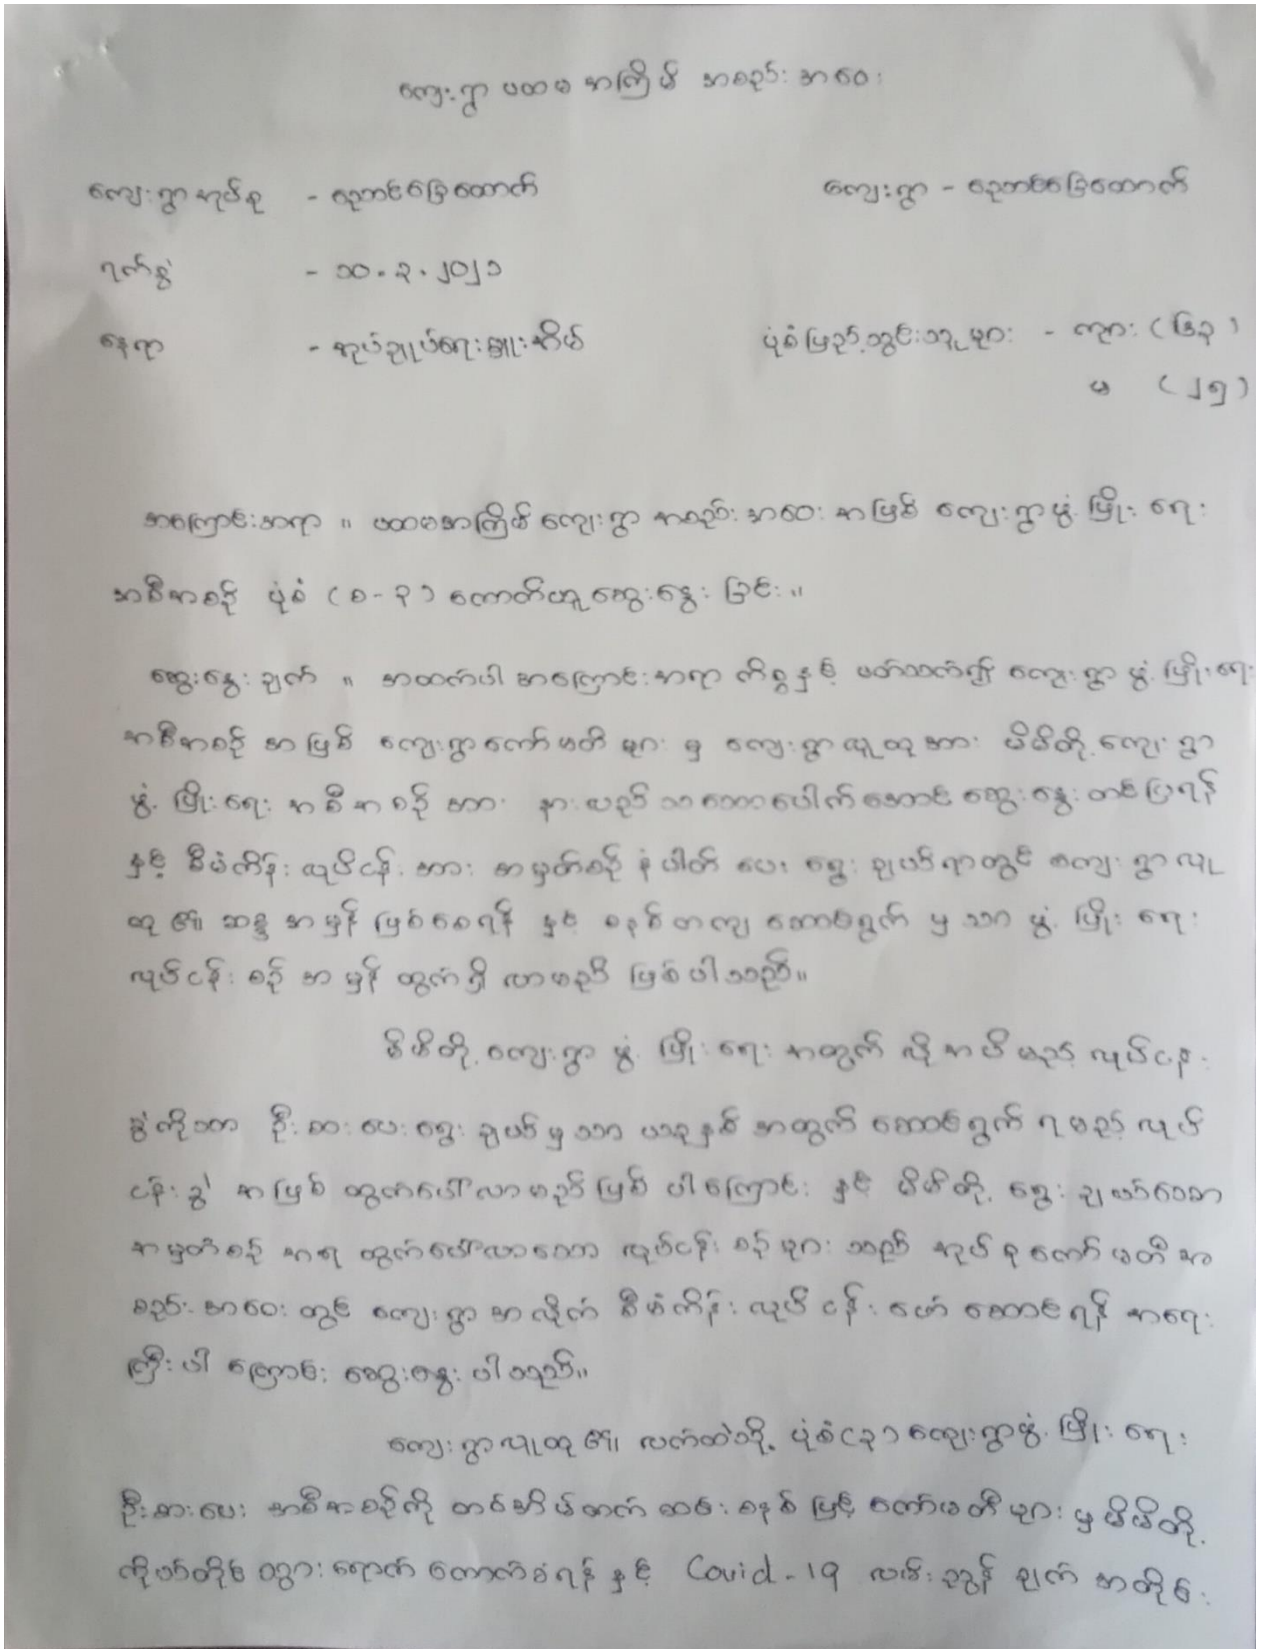 ကျေးရွာ ပထမ အကြိမ် အစည်း အဝေး
ကျေးရွာအုပ်စု - ညောင်ခြေထောက် ကျေးရွာ - ညောင်ခြေထောက်
ရက်စွဲ - ၁၀.၃.၂၀၂၁
နေရာ - အုပ်ချုပ်ရေးမှူးအိမ် ပုံစံဖြည့်သွင်းသူများ - ကျား (၆၃)
မ (၂၅)
အကြောင်းအရာ ။ ပထမအကြိမ် ကျေးရွာ အစည်းအဝေး အဖြစ် ကျေးရွာဖွံ့ဖြိုးရေး
အစီအစဉ် ပုံစံ (စ-၃) ကောက်ယူဆွေးနွေးခြင်း ။
ဆွေးနွေးချက် ။ အထက်ပါ အကြောင်းအရာ ကိစ္စနှင့် ပတ်သက်၍ ကျေးရွာဖွံ့ဖြိုးရေး
အစီအစဉ် အဖြစ် ကျေးရွာကော်မတီ များ မှ ကျေးရွာလူထုအား မိမိတို့ ကျေးရွာ
ဖွံ့ဖြိုးရေး အစီအစဉ် အား နားလည် သဘောပေါက်အောင် ဆွေးနွေး တင်ပြရန်
နှင့် စီမံကိန်း လုပ်ငန်း အား အမှတ်စဉ် နံပါတ် ပေး ရွေးချယ်ရာတွင် ကျေးရွာလူ
ထု ၏ ဆန္ဒ အမှန် ဖြစ်စေရန် နှင့် စနစ်တကျ ဆောင်ရွက် မှ သာ ဖွံ့ဖြိုးရေး
လုပ်ငန်း စဉ် အမှန် ထွက်ရှိ လာမည် ဖြစ်ပါသည်။
မိမိတို့ ကျေးရွာ ဖွံ့ဖြိုးရေး အတွက် လိုအပ်မည့် လုပ်ငန်း
ခွဲကိုသာ ဦးစားပေးရွေးချယ်မှသာ ယခုနှစ် အတွက် ဆောင်ရွက် ရမည့် လုပ်
ငန်းခွဲ အဖြစ် ထွက်ပေါ်လာမည်ဖြစ်ပါကြောင်း နှင့် မိမိတို့ ရွေးချယ်သော
အမှတ်စဉ် အရ ထွက်ပေါ်လာသော လုပ်ငန်းစဉ်များ သည် အုပ်စုကော်မတီ အ
စည်းအဝေးတွင် ကျေးရွာ အလိုက် စီမံကိန်း လုပ်ငန်း ဖော်ဆောင်ရန် အရေး
ကြီးပါကြောင်း ဆွေးနွေးပါသည်။
ကျေးရွာလူထု၏ လက်ထဲသို့ ပုံစံ(၃) ကျေးရွာဖွံ့ဖြိုးရေး
ဦးစားပေး အစီအစဉ်ကို တစ်အိမ်တက်ဆင်း စနစ်ဖြင့် ကော်မတီများ မှ မိမိတို့
ကိုယ်တိုင် သွားရောက် ကောက်ခံရန် နှင့် Covid-19 လမ်းညွှန်ချက် အတိုင်း